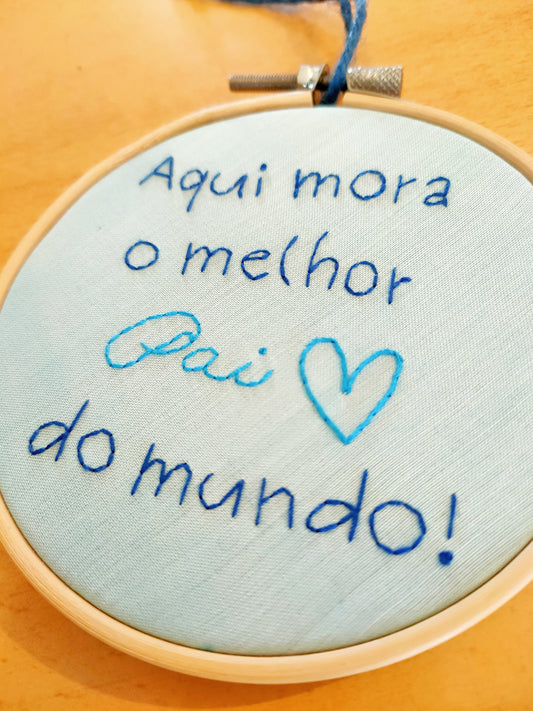 Aqui mora
o melhor
Pai
do mundo!